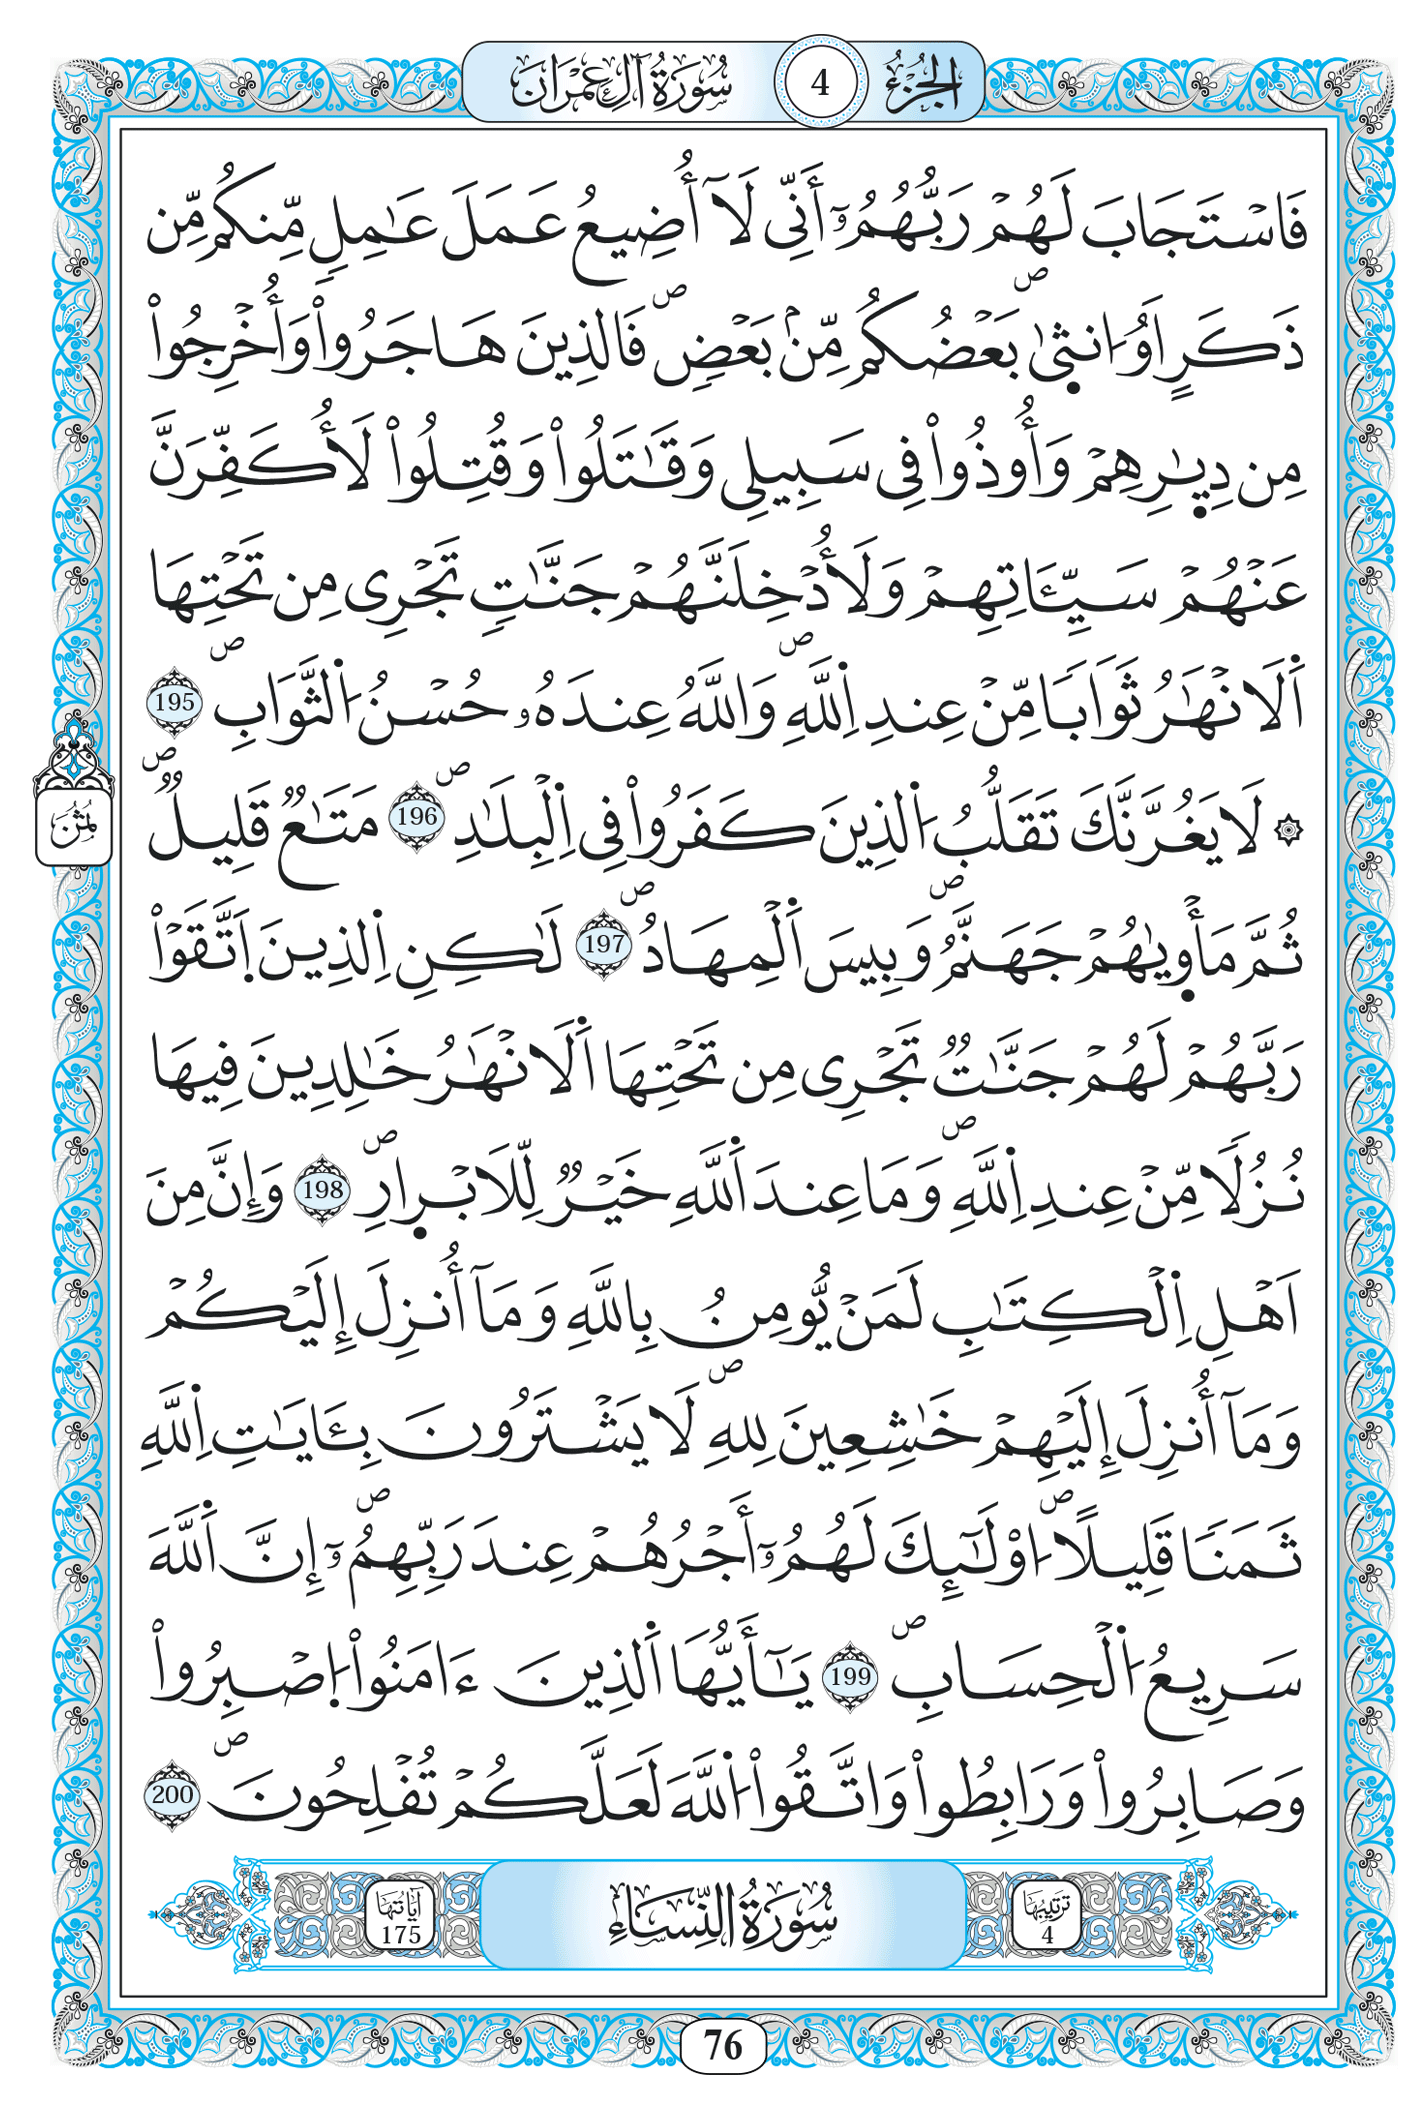 الجزء 4 سورة آل عمران
فَاسْتَجَابَ لَهُمْ رَبُّهُمُۥٓ أَنِّي لَآ أُضِيعُ عَمَلَ عَٰمِلٖ مِّنكُم مِّن
ذَكَرٍ اَوُ ا۟نث۪ىٰ بَعْضُكُم مِّنۢ بَعْضٖۖ فَالذِينَ هَاجَرُواْ وَأُخْرِجُواْ
مِن دِيٰ۪رِهِمْ وَأُوذُواْ فِي سَبِيلِي وَقَٰتَلُواْ وَقُتِلُواْ لَأُكَفِّرَنَّ
عَنْهُمْ سَيِّـَٔاتِهِمْ وَلَأُدْخِلَنَّهُمْ جَنَّٰتٖ تَجْرِي مِن تَحْتِهَا
اَ۬لَانْهَٰرُ ثَوَاباٗ مِّنْ عِندِ اِ۬للَّهِۖ وَاللَّهُ عِندَهُۥ حُسْنُ اُ۬لثَّوَابِۖ 195
۞ لَا يَغُرَّنَّكَ تَقَلُّبُ اُ۬لذِينَ كَفَرُواْ فِي اِ۬لْبِلَٰدِۖ 196 مَتَٰعٞ قَلِيلٞۖ
ثُمَّ مَأْو۪يٰهُمْ جَهَنَّمُۖ وَبِيسَ اَ۬لْمِهَادُۖ 197 لَٰكِنِ اِ۬لذِينَ اَ۪تَّقَوْاْ
رَبَّهُمْ لَهُمْ جَنَّٰتٞ تَجْرِي مِن تَحْتِهَا اَ۬لَانْهَٰرُ خَٰلِدِينَ فِيهَا
نُزُلاٗ مِّنْ عِندِ اِ۬للَّهِۖ وَمَا عِندَ اَ۬للَّهِ خَيْرٞ لِّلَابْر۪ارِۖ 198 وَإِنَّ مِنَ
اَهْلِ اِ۬لْكِتَٰبِ لَمَنْ يُّومِنُ بِاللَّهِ وَمَآ أُنزِلَ إِلَيْكُمْ
وَمَآ أُنزِلَ إِلَيْهِمْ خَٰشِعِينَ لِلهِۖ لَا يَشْتَرُونَ بِـَٔايَٰتِ اِ۬للَّهِ
ثَمَناٗ قَلِيلاًۖ ا۟وْلَٰٓئِكَ لَهُمُۥٓ أَجْرُهُمْ عِندَ رَبِّهِمُۥٓۖ إِنَّ اَ۬للَّهَ
سَرِيعُ اُ۬لْحِسَابِۖ 199 يَٰٓأَيُّهَا اَ۬لذِينَ ءَامَنُواْ اُ۪صْبِرُواْ
وَصَابِرُواْ وَرَابِطُواْ وَاتَّقُواْ اُ۬للَّهَ لَعَلَّكُمْ تُفْلِحُونَۖ 200
ثُمُن
ترتيبها 4 سورة النساء آياتها 175
76